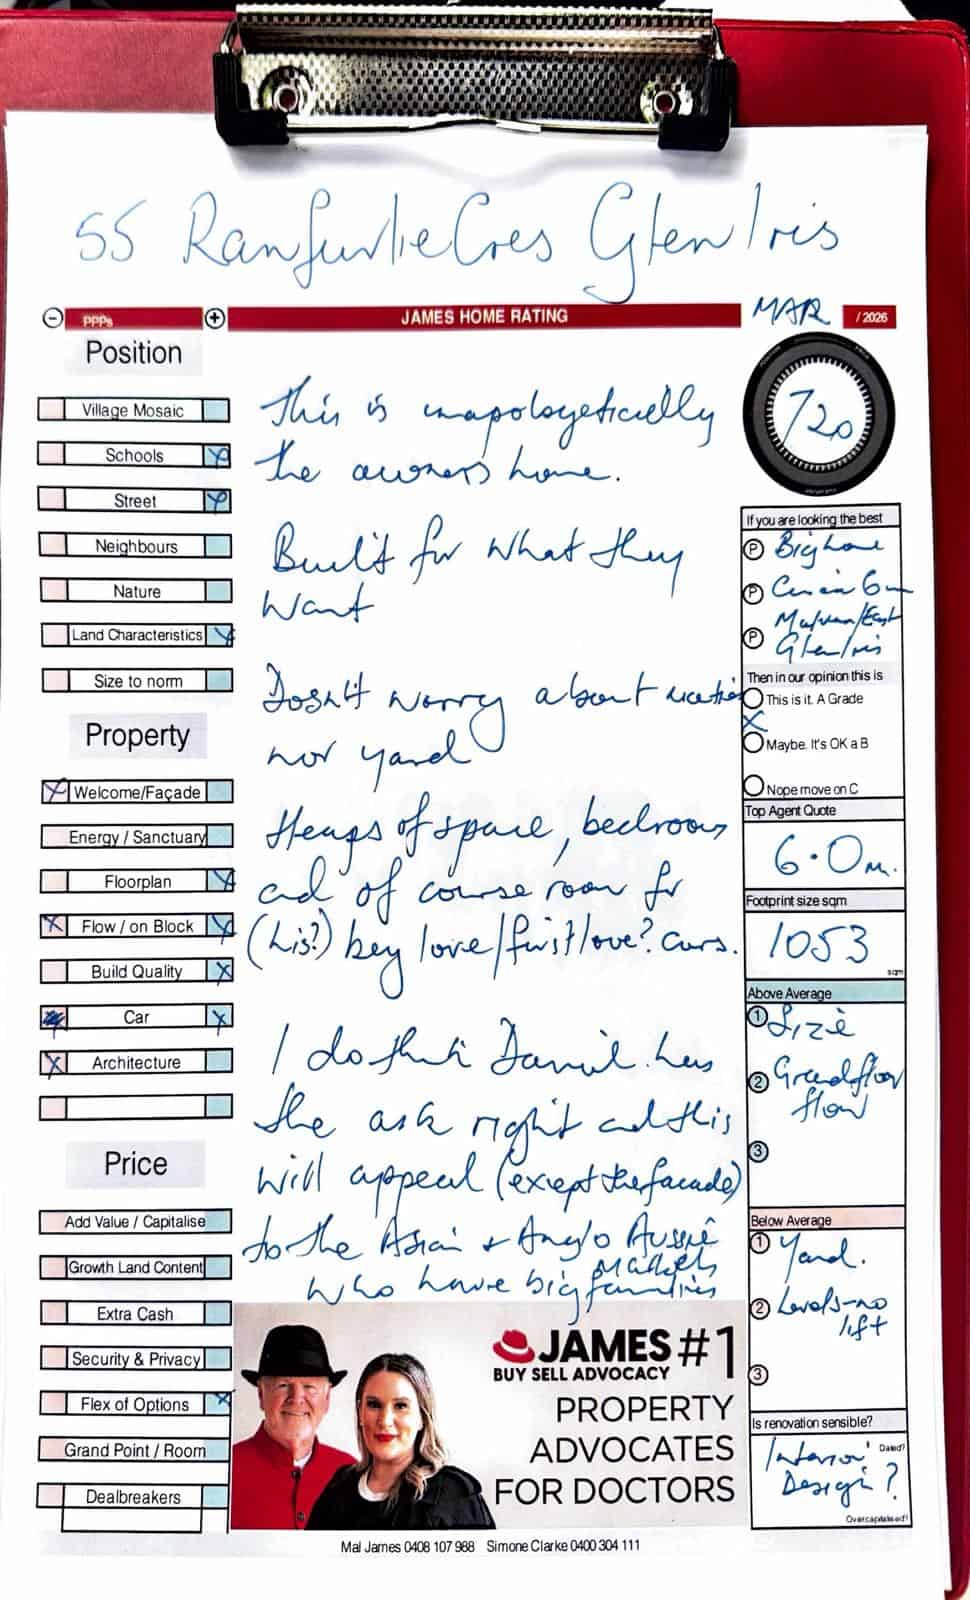 55 Ranfurlie Cres Glen Iris
− PPPs +
JAMES HOME RATING
MAR / 2026
Position
Village Mosaic
Schools
Street
Neighbours
Nature
Land Characteristics
Size to norm
Property
Welcome/Façade
Energy / Sanctuary
Floorplan
Flow / on Block
Build Quality
Car
Architecture
Price
Add Value / Capitalise
Growth Land Content
Extra Cash
Security & Privacy
Flex of Options
Grand Point / Room
Dealbreakers
This is unapologetically
the owners home.
Built for what they
want
Dosn't worry about
nor yard
Heaps of space, bedrooms
and of course room for
(his?) key love/first love? cars.
I do think Daniel has
the ask right and this
will appeal (except the facade)
to the Asian & Anglo Aussie
Markets
who have big families
720
If you are looking the best
P Big home
P
P Malvern/East
Glen Iris
Then in our opinion this is
This is it. A Grade
X
Maybe. It's OK a B
Nope move on C
Top Agent Quote
6.0m.
Footprint size sqm
1053
sqm
Above Average
1 Size
2 Groundfloor
flow
3
Below Average
1 Yard.
2 Levels-no
lift
3
Is renovation sensible?
Dated?
Interior
Design?
Overcapitalised!
JAMES #1
BUY SELL ADVOCACY
PROPERTY
ADVOCATES
FOR DOCTORS
Mal James 0408 107 988 Simone Clarke 0400 304 111